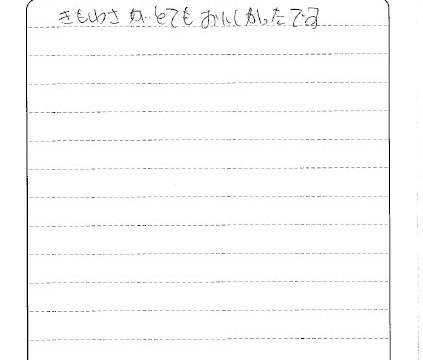 きもわさ が とても おいしかったです